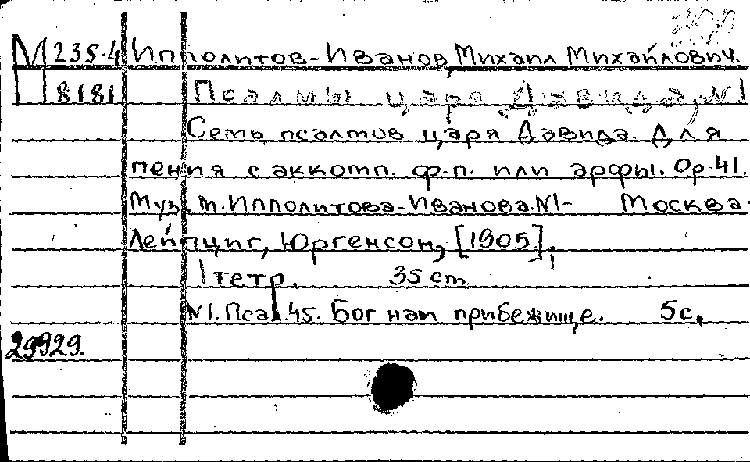 М 235-4 Ипполитов-Иванов, Михаил Михайлович.
П 8181 Псалмы царя Давида, №1
Семь псалмов царя Давида. Для
пения с аккомп. ф.-п. или арфы. Ор.41.
Муз. М.Ипполитова-Иванова. №1- Москва-
Лейпциг, Юргенсон, [1905].
1 тетр. 35 см
№1. Псал. 45. Бог нам прибежище. 5 с.
29929.